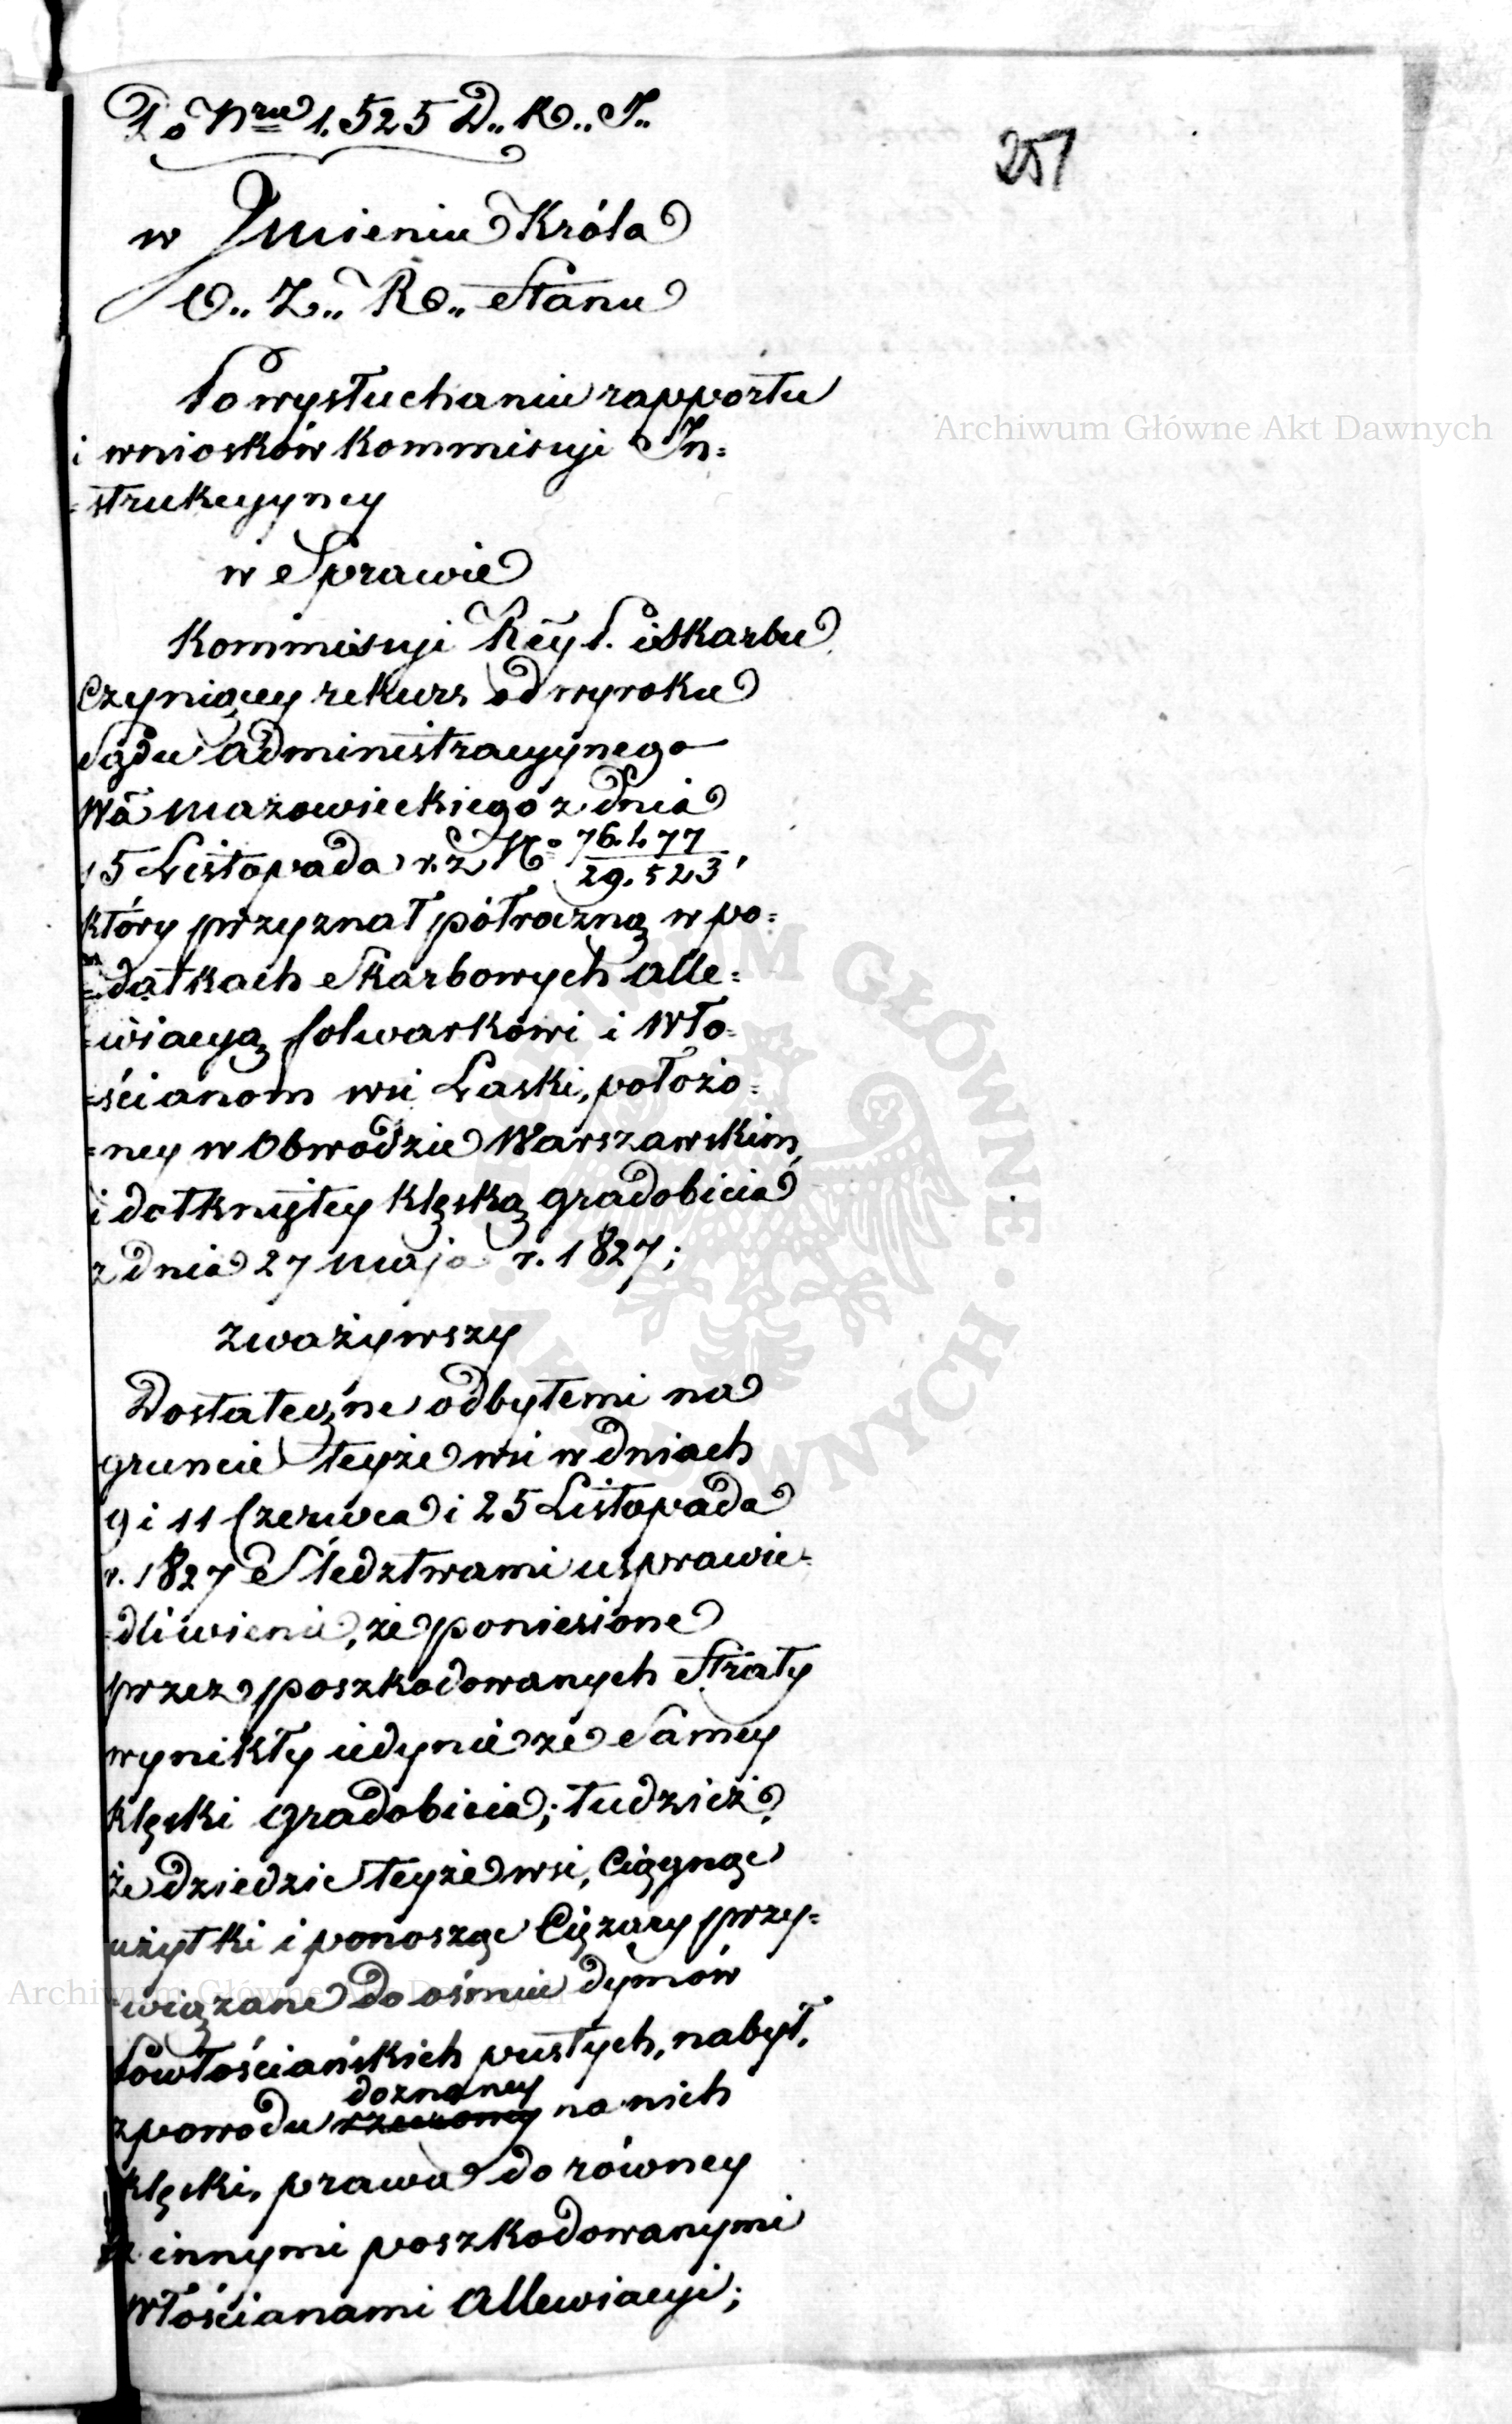 Do Nru 1.525 D.. K.. J..
251
w Jmieniu Króla
O.. Z.. R.. Stanu
Po wysłuchaniu rapportu
i wniosków Kommisyi In=
=strukcyyney
w Sprawie
Kommisyi Rey P. i Skarbu
Czyniącey rekurs od wyroku
Sądu Administracyynego
Wa Mazowieckiego z dnia
15 Listopada r. z. No 76.477/29.523,
który przyznał półroczną w po=
=datkach Skarbowych alle=
=wiacyą folwarkowi i Wło=
=ścianom wsi Laski, położo=
=ney w Obwodzie Warszawskim,
i dotkniętey klęską gradobicia
z dnia 27 Maja r. 1827;
zważywszy
Dostateczne odbytemi na
gruncie teyże wsi w dniach
9 i 11 Czerwca i 25 Listopada
r. 1827 Śledztwami usprawie=
=dliwienie, że poniesione
przez poszkodowanych Straty
wynikły iedynie ze Samey
klęski gradobicia; tudzież
że dziedzic teyże wsi, Ciągnąc
użytki i ponosząc Ciężary przy=
=wiązane do ośmiu dymów
Powłościańskich pustych, nabył,
z powodu doznaney na nich
klęski, prawa do równey
z innymi poszkodowanymi
Włościanami Allewiacyi;
Archiwum Główne Akt Dawnych
Archiwum Główne Akt Dawnych
ARCHIWUM GŁÓWNE · AKT DAWNYCH ·